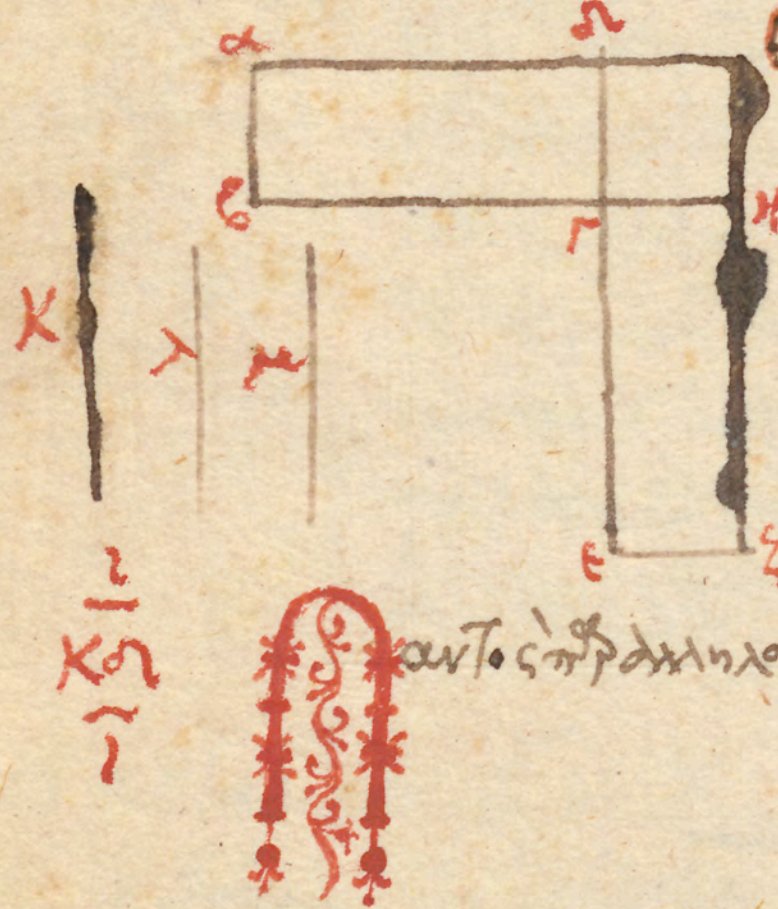 α δ
β γ η
κ λ μ
ε ζ
κδ
Παντὸς παραλληλο